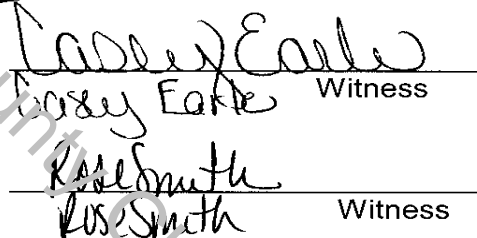 Casey Earle
Casey Earle Witness
Rose Smith
Rose Smith Witness
unty O